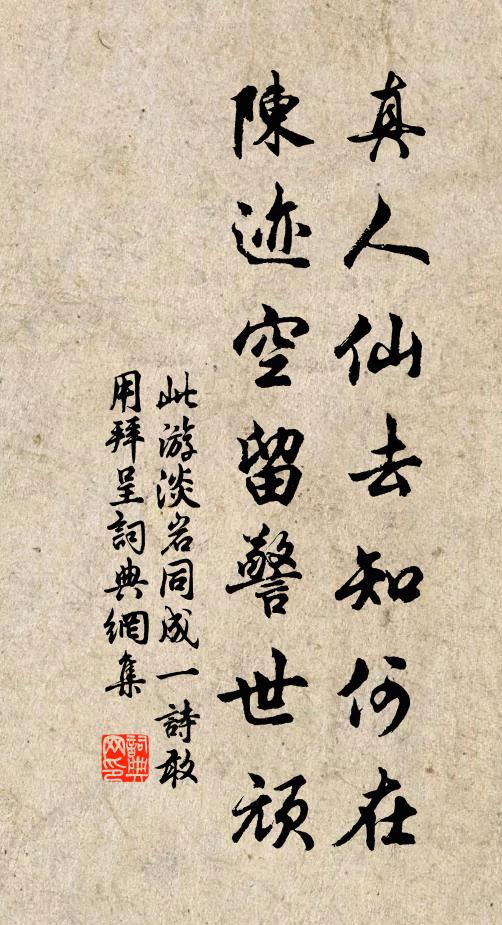 真人仙去知何在
陳迹空留警世頑
此游淡岩同成一詩敢
用拜呈詞典網集
詞典网印